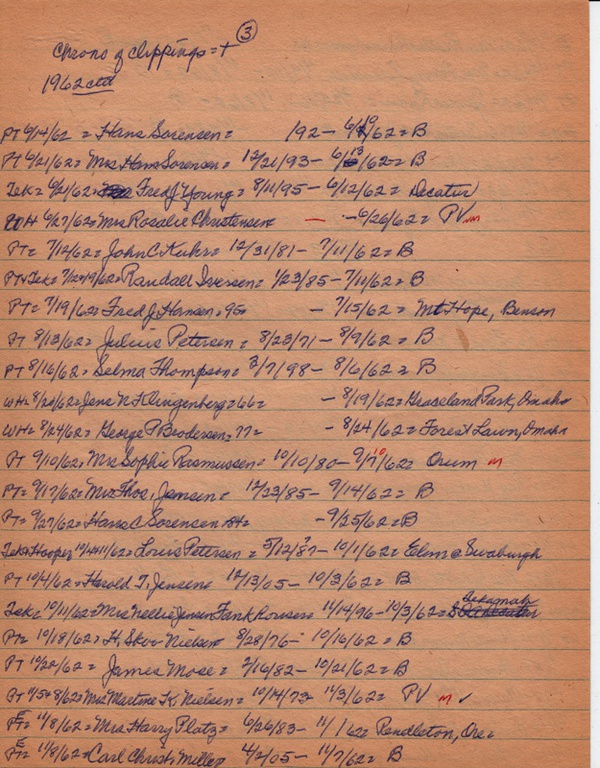 ③
Chrono of clippings = +
1962 ctd
PT 6/14/62 = Hans Sorensen = 192 – 6/10/62 = B
PT 6/21/62 = Mrs Hans Sorensen = 12/21/93 – 6/13/62 = B
Tek = 6/21/62 = Fred J Young = 8/11/95 – 6/12/62 = Decatur
WH 6/27/62 = Mrs Rosalie Christensen – – 6/26/62 = PV m
PT = 7/12/62 = John C Kuhr = 12/31/81 – 7/11/62 = B
PT + Tek = 7/12+19/62 = Randall Iversen = 1/23/85 – 7/10/62 = B
PT = 7/19/62 = Fred J. Hansen = 95 = – 7/15/62 = Mt Hope, Benson
PT 8/13/62 = Julius Petersen = 8/23/71 – 8/9/62 = B
PT 8/16/62 = Selma Thompson = 3/7/98 – 8/6/62 = B
WH = 8/20/62 = Jene N Klingenberg = 66 = – 8/19/62 = Graceland Park, Omaha
WH = 8/24/62 = George P Brodersen, 77 = – 8/24/62 = Forest Lawn, Omaha
PT 9/10/62, Mrs Sophie Rasmussen = 10/10/80 – 9/10/62 = Orum m
PT = 9/17/62 = Mrs Thos. Jensen = 12/23/85 – 9/14/62 = B
PT = 9/27/62 = Hans C Sorensen = 84 = – 9/25/62 = B
Tek + Hooper 10/4+11/62 = Louis Petersen = 5/12/87 – 10/1/62 = Elim @ Swaburgh
PT 10/4/62 = Harold T. Jensen = 12/13/05 – 10/3/62 = B
Tek = 10/11/62 = Mrs Nellie Jensen Fankhouser = 11/14/96 – 10/3/62 = Tekamah
PT = 10/18/62 = H. Skov Nielsen 8/28/76 – 10/16/62 = B
PT 10/20/62 = James Mose = 2/16/82 – 10/21/62 = B
PT 11/5+8/62 = Mrs Martine K. Nielsen = 10/14/73 – 11/3/62 = PV m ✓
PT = 11/8/62 = Mrs Harry Platz = 6/26/83 – 11/1/62 = Pendleton, Ore =
PT = 11/8/62 = Carl Christ. Miller 4/2/05 – 11/7/62 = B